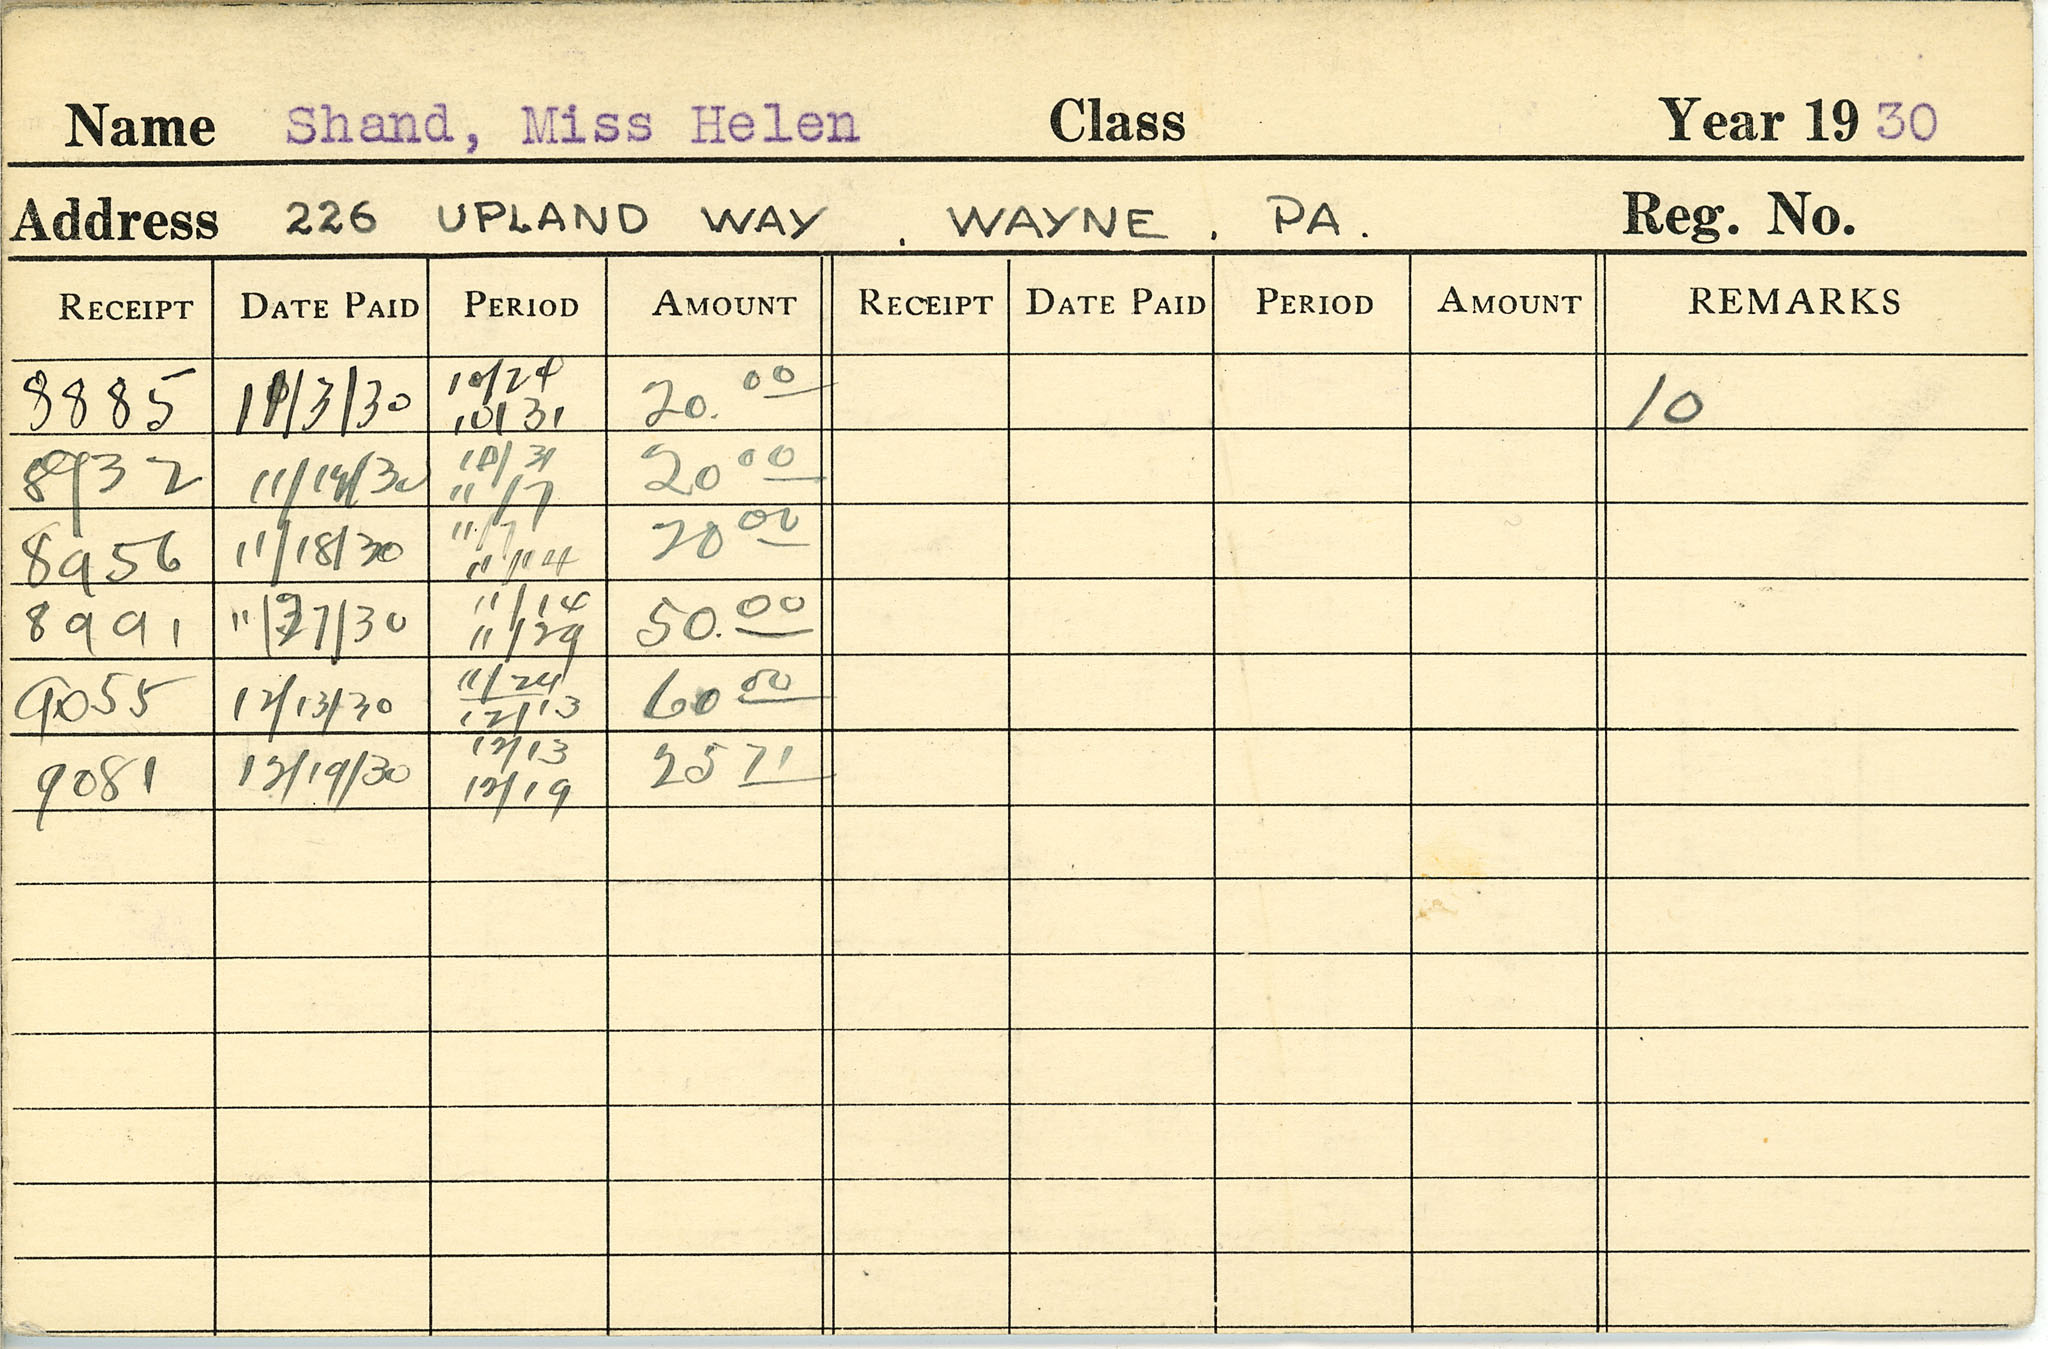 Name Shand, Miss Helen Class Year 19 30
Address 226 UPLAND WAY, WAYNE, PA. Reg. No.
RECEIPT DATE PAID PERIOD AMOUNT RECEIPT DATE PAID PERIOD AMOUNT REMARKS
8885 11/3/30 10/24 10/31 20.00 10
8932 10/31 11/7 20 00
8956 11/18/30 11/7 11/14 20 00
8991 11/27/30 11/14 11/29 50.00
9055 12/13/30 11/24 12/13 60 00
9081 12/19/30 12/13 12/19 25 71